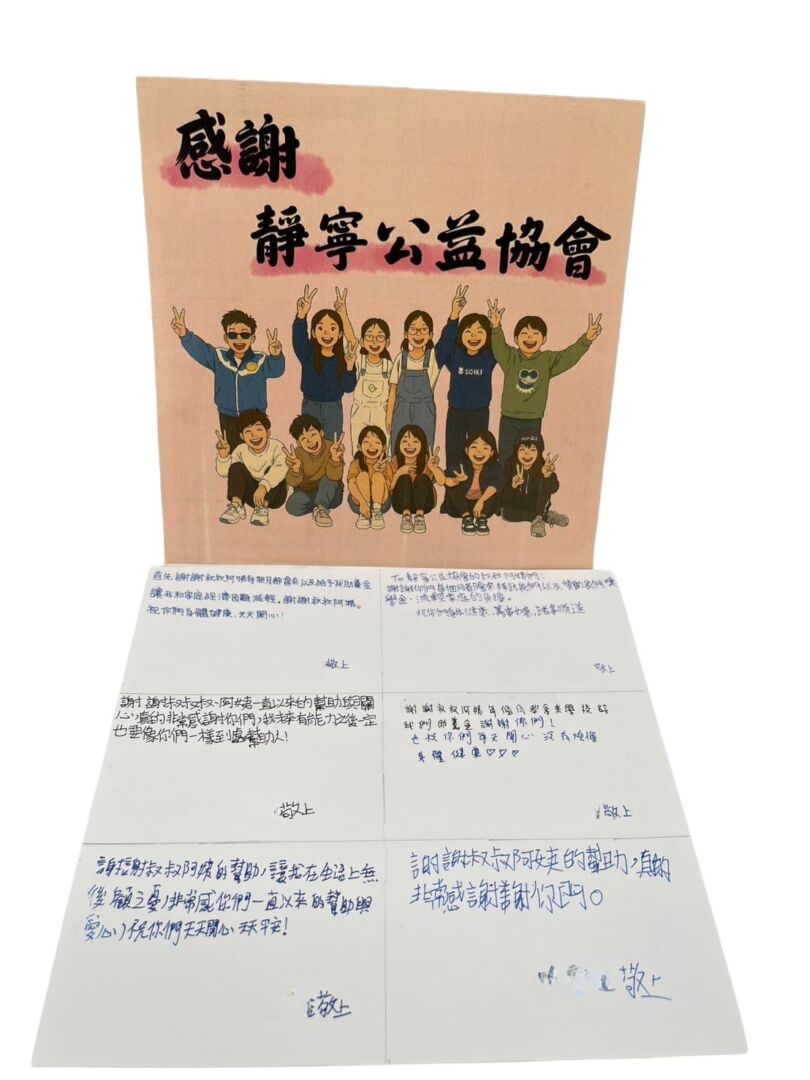 感謝
靜寧公益協會
SOIKI
首先謝謝叔叔阿姨每個月都會來以及給予我助養金
讓我和家庭經濟困難減輕,謝謝叔叔阿姨。
祝你們身體健康、天天開心!
敬上
To 靜寧公益協會的叔叔阿姨們:
謝謝你們每個月都會來拜訪我們以及贊助我們獎
學金,減輕家庭的負擔。
祝你們身體健康、萬事如意、諸事順遂
敬上
謝謝叔叔叔、阿姨一直以來的幫助與關
心,真的非常感謝你們,我未來有能力之後一定
也要像你們一樣到處幫助人!
敬上
謝謝叔叔阿姨每個月都會來學校給
我們助養金 謝謝你們!
也祝你們每天開心 沒有煩惱
身體健康♡♡♡
敬上
謝謝叔叔阿姨的幫助,讓我在生活上無
後顧之憂,非常感你們一直以來的幫助與
愛心,祝你們天天開心 天天平安!
敬上
謝謝叔叔阿姨的幫助,真的
非常感謝謝你們。
敬上